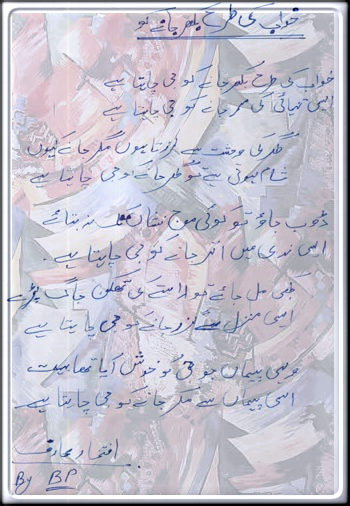 خواب کی طرح بکھر جانے کو
خواب کی طرح بکھر جانے کو جی چاہتا ہے
ایسی تنہائی کہ مر جانے کو جی چاہتا ہے
گھر کی وحشت سے لرزتا ہوں مگر جانے کیوں
شام ہوتی ہے تو گھر جانے کو جی چاہتا ہے
ڈوب جاؤں تو کوئی موج نشاں تک نہ بتائے
ایسی ندی میں اتر جانے کو جی چاہتا ہے.
کبھی مل جائے تو راستے کی تھکن جاگ پڑے
ایسی منزل سے گزر جانے کو جی چاہتا ہے
وہی پیماں جو جی کو خوش آیا تھا بہت
اسی پیماں سے مکر جانے کو جی چاہتا ہے
افتخار عارف
By BP